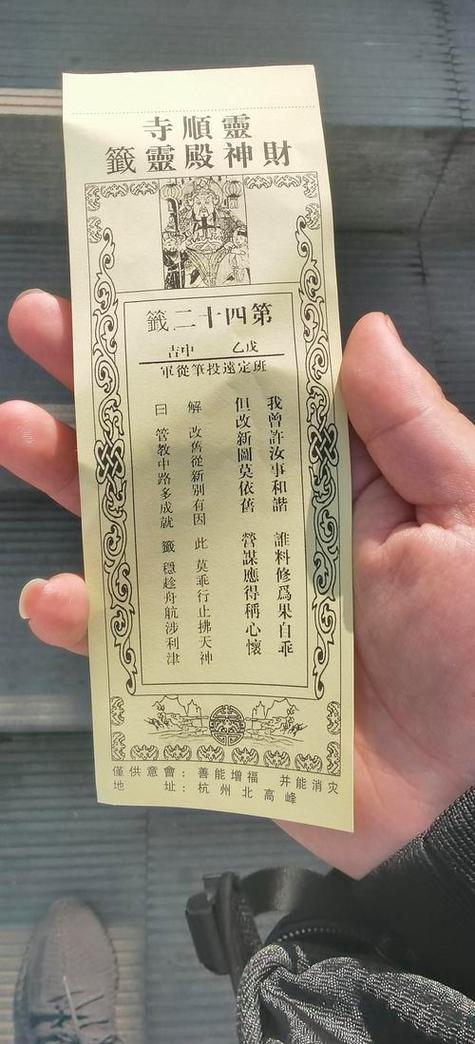 靈順寺
財神殿靈籤
第四十二籤
戊乙 中吉
班定遠投筆從軍
我曾許汝事和諧 誰料修爲果自乖
但改新圖莫依舊 營謀應得稱心懷
解 改舊從新別有因 此 莫乖行止拂天神
曰 管教中路多成就 籤 穩趁舟航涉利津
僅供意會：善能增福 并能消灾
地 址：杭州北高峰